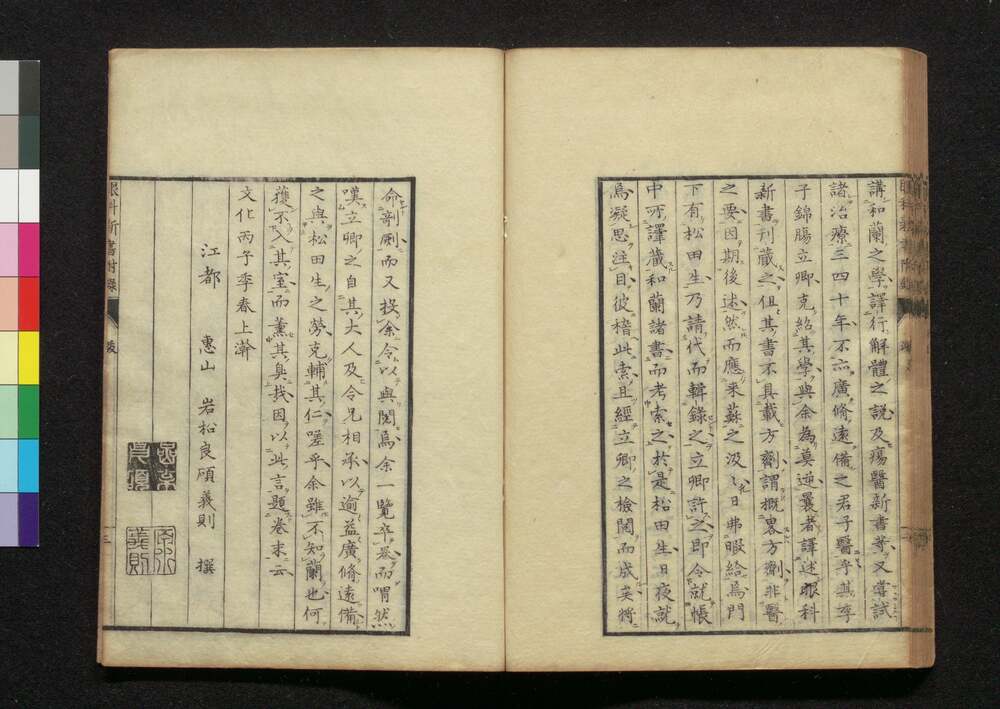 講和蘭之學譯行解體之説及瘍醫新書等又嘗試
諸治療三四十年不亦廣脩遠備之君子醫乎其季
子錦膓立卿克紹其學與余為莫逆曩者譯述眼科
新書刊藏之但其書不具載方劑謂概畧方劑非醫
之要因期後述然而應釆蘇之汲〻日弗暇給焉門
下有松田生乃請代而輯錄之立卿許之即令就帳
中所譯藏和蘭諸書而考索之於是松田生日夜就
焉凝思注目彼稽此索且經立卿之檢閲而成矣將
命剞劂而又投余令以與閲焉余一覽卒卷而喟然
嘆立卿之自其大人及令兄相承以逾益廣脩遠備
之與松田生之勞克輔其仁嗟乎余雖不知蘭也何
獲不入其室而薫其臭哉因以此言題卷末云
文化丙子季春上澣
江都 惠山 岩松良碩義則 撰
眼科新書附錄 跋 三
義則